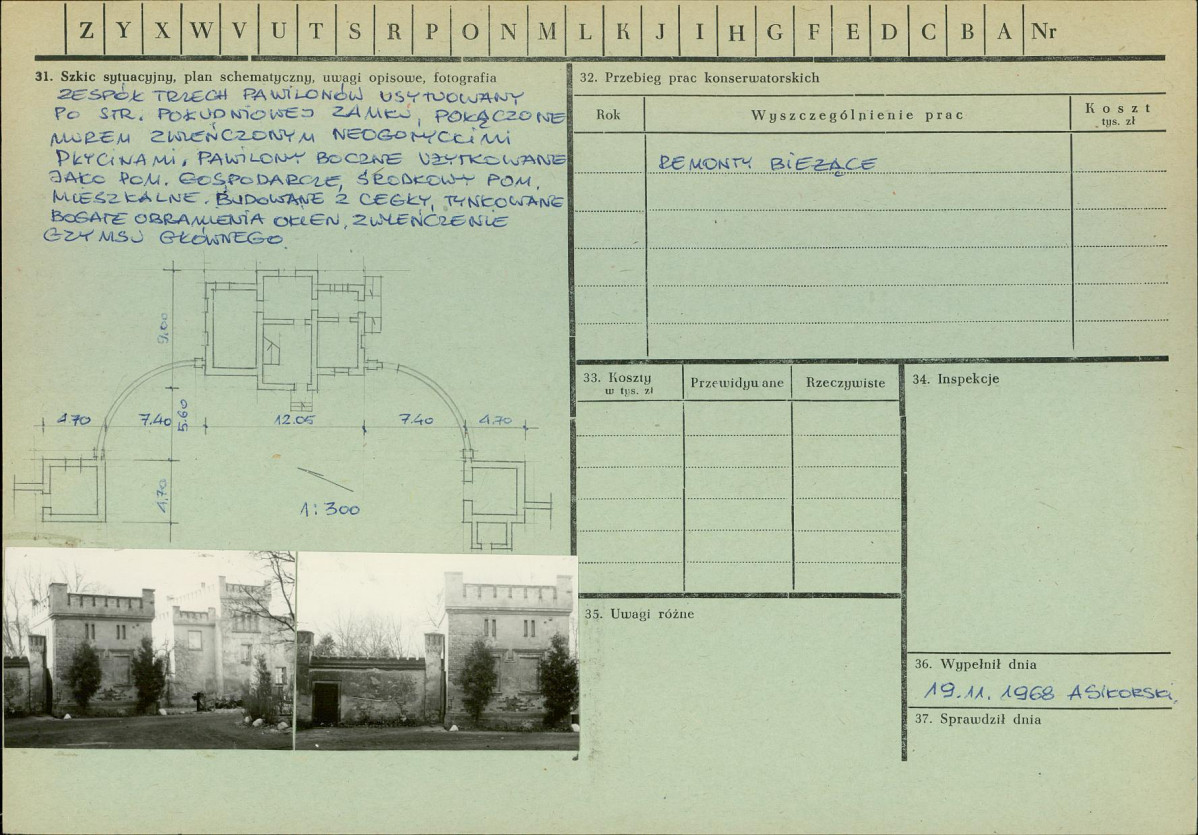 Z Y X W V U T S R P O N M L K J I H G F E D C B A Nr
31. Szkic sytuacyjny, plan schematyczny, uwagi opisowe, fotografia
ZESPÓŁ TRZECH PAWILONÓW USYTUOWANY
PO STR. POŁUDNIOWEJ ZAMKU, POŁĄCZONE
MUREM ZWIEŃCZONYM NEOGOTYCKIMI
PŁYCINAMI, PAWILONY BOCZNE UŻYTKOWANE
JAKO POM. GOSPODARCZE, ŚRODKOWY POM.
MIESZKALNE. BUDOWANE Z CEGŁY, TYNKOWANE
BOGATE OBRAMIENIA OKIEN, ZWIEŃCZENIE
GZYMSU GŁÓWNEGO.
9.00
4.70 7.40 5.60 12.05 7.40 4.70
4.70
1:300
32. Przebieg prac konserwatorskich
Rok Wyszczególnienie prac Koszt
tys. zł
REMONTY BIEŻĄCE
33. Koszty Przewidywane Rzeczywiste
w tys. zł
34. Inspekcje
35. Uwagi różne
36. Wypełnił dnia
19.11.1968 A SIKORSKI,
37. Sprawdził dnia